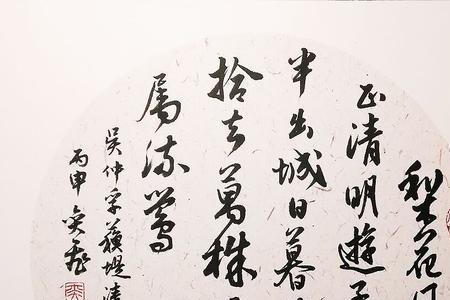 梨花
正清明遊子
半出城日暮
拾去萬株
属流鶯
吴仲孚蘇堤清
丙申